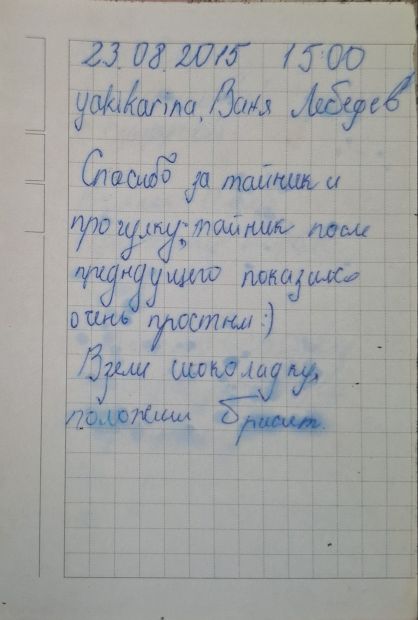 23.08.2015 15:00
yakikarina, Ваня Лебедев
Спасибо за тайник и
прогулку; тайник после
предыдущего показался
очень простым :)
Взяли шоколадку,
положили